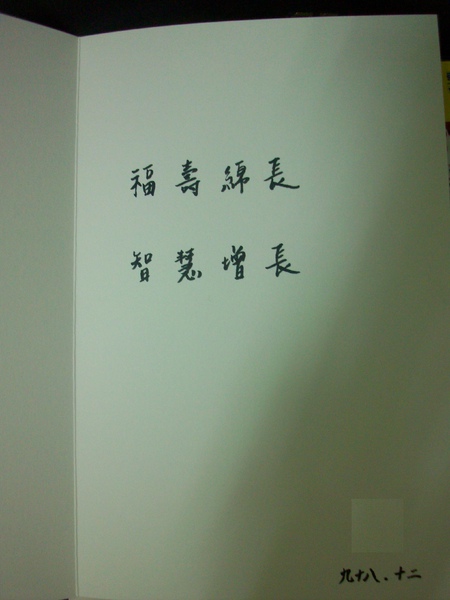 福壽綿長
智慧增長
九十八.十二